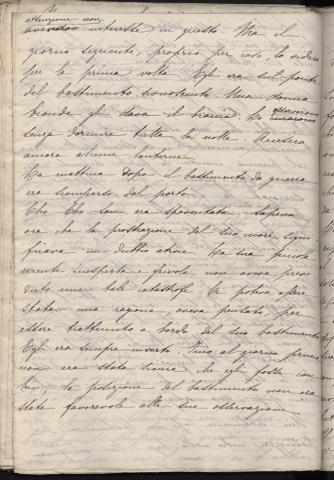 attenzione non
interesse in questo. Ma il
giorno seguente, proprio per caso lo videro
per la prima volta. Egli era sul ponte
del bastimento sconosciuto. Una donna
bionda gli dava il braccio. Lo
senza dormire tutta la notte. Accesero
ancora alcune lanterne.
La mattina dopo il bastimento da guerra
era scomparso dal porto.
Cho Cho San era spaventata. Sapeva
ora che la prostrazione del suo cuore signi
ficava un dubbio atroce. La sua piccola
mente inesperta e frivola non aveva preve
duto una tale catastrofe. Ci poteva essere
stata una ragione, aveva pensato, per
essere trattenuto a bordo del suo bastimento.
Egli era sempre incerto. Fino al giorno prima
non era stata sicura che egli fosse
la posizione del bastimento non era
stata favorevole alle sue osservazioni.